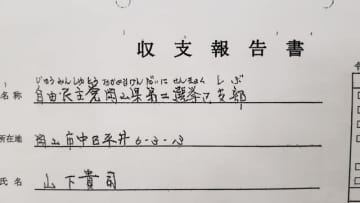 収支報告書
じゆうみんしゅとう おかやまけんだいに せんきょく しぶ
名称 自由民主党岡山県第二選挙区支部
所在地 岡山市中区平井6-3-13
氏名 山下貴司